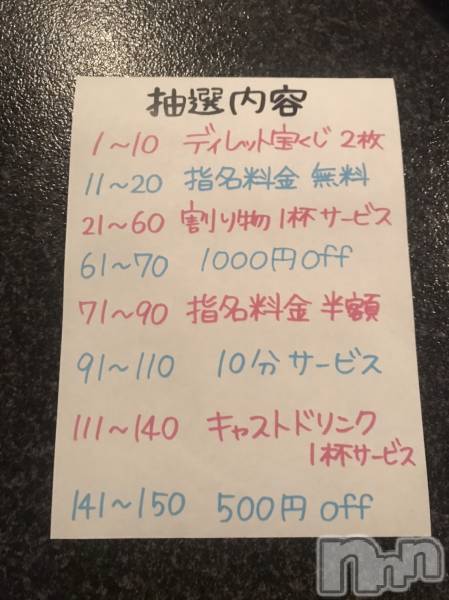 抽選内容
1〜10 ディレット宝くじ 2枚
11〜20 指名料金 無料
21〜60 割り物 1杯サービス
61〜70 1000円off
71〜90 指名料金 半額
91〜110 10分サービス
111〜140 キャストドリンク
1杯サービス
141〜150 500円off
nnn